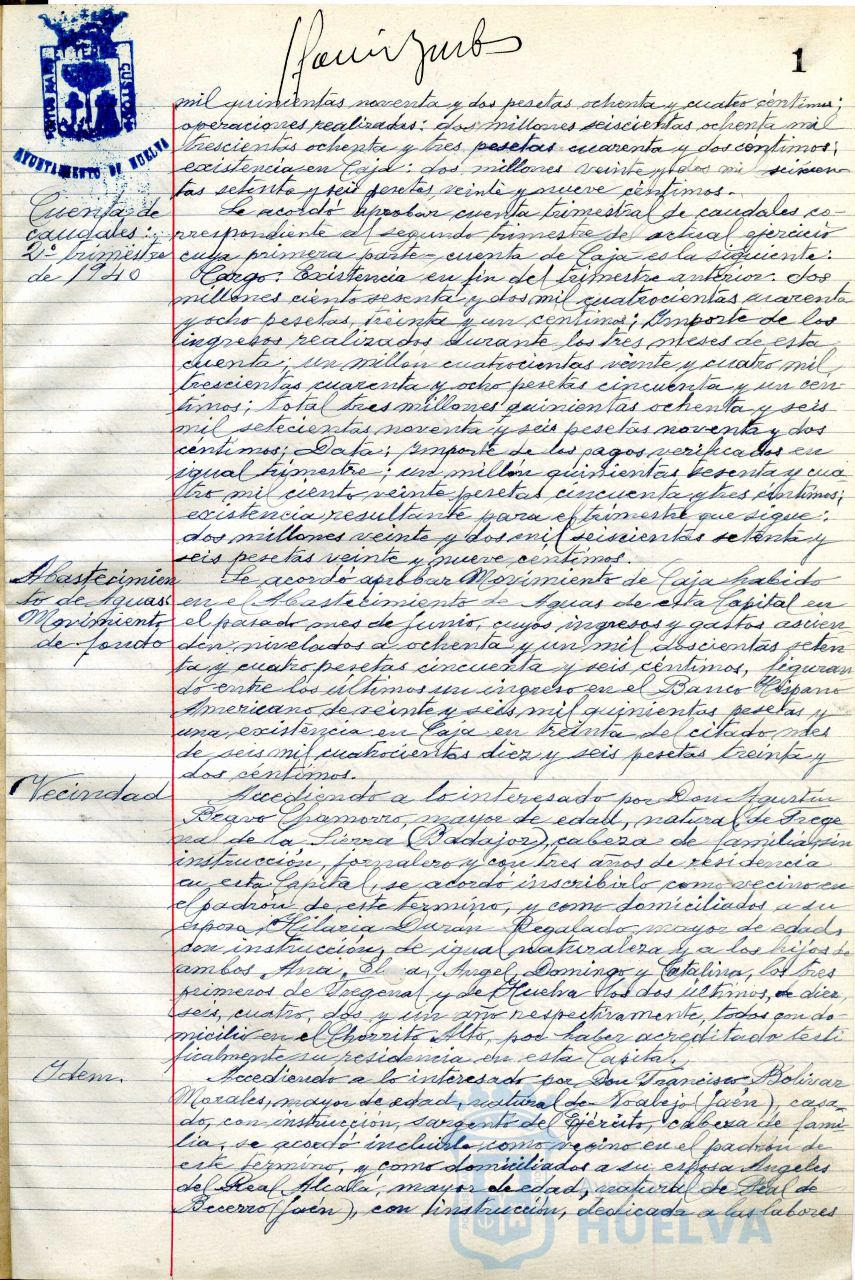 1
PORTUS MARIS ET TERRE CUSTODIA
AYUNTAMIENTO DE HUELVA
mil quinientas noventa y dos pesetas ochenta y cuatro céntimos;
operaciones realizadas: dos millones seiscientas ochenta mil
trescientas ochenta y tres pesetas cuarenta y dos centimos;
existencia en Caja: dos millones veinte y dos mil seiscien-
tas setenta y seis pesetas veinte y nueve céntimos.
Cuenta de
caudales:
2º trimestre
de 1940
Se acordó aprobar cuenta trimestral de caudales co-
rrespondiente al segundo trimestre de actual ejercicio
cuya primera parte-cuenta de Caja es la siguiente:
Cargo: Existencia en fin del trimestre anterior. dos
millones ciento sesenta y dos mil cuatrocientas cuarenta
y ocho pesetas, treinta y un centimos; Importe de los
ingresos realizados durante los tres meses de esta
cuenta; un millón cuatrocientas veinte y cuatro mil,
trescientas cuarenta y ocho pesetas cincuenta y un cén-
timos; total tres millones quinientas ochenta y seis
mil setecientas noventa y seis pesetas noventa y dos
céntimos; Data; Importe de los pagos verificados en
igual trimestre; un millon quinientas sesenta y cua-
tro mil ciento veinte pesetas cincuenta y tres centimos;
existencia resultante para el trimestre que sigue:
dos millones veinte y dos mil seiscientas setenta y
seis pesetas veinte y nueve céntimos.
Abastecimien
to de Aguas:
Movimiento
de fondo
Se acordó aprobar Movimiento de Caja habido
en el Abastecimiento de Aguas de esta Capital en
el pasado mes de Junio, cuyos ingresos y gastos ascien-
den nivelados a ochenta y un mil doscientas seten-
ta y cuatro pesetas cincuenta y seis céntimos, figuran-
do entre los últimos un ingreso en el Banco Hispano
Americano de veinte y seis mil quinientas pesetas y
una existencia en Caja en treinta del citado mes
de seis mil cuatrocientas diez y seis pesetas treinta y
dos céntimos.
Vecindad
Accediendo a lo interesado por Don Agustín
Bravo Chamorro, mayor de edad, natural de Frege-
nal de la Sierra (Badajoz), cabeza de familia, sin
instrucción, jornalero y con tres años de residencia
en esta Capital, se acordó inscribirlo como vecino en
el padrón de este término, y como domiciliados a su
esposa Hilaria Durán Regalado, mayor de edad,
con instrucción, de igual naturaleza y a los hijos de
ambos Ana, Angel, Domingo y Catalina, los tres
primeros de Fregenal y de Huelva los dos últimos, de diez,
seis, cuatro, dos y un año respectivamente, todos con do-
micilio en el Chorrito Alto, por haber acreditado testi-
ficalmente su residencia en esta Capital.
Idem.
Accediendo a lo interesado por Don Francisco Bolivar
Morales, mayor de edad, natural de Noalejo (Jaén), casa-
do, con instrucción, sargento del Ejército, cabeza de fami-
lia, se acordó incluirle como vecino en el padrón de
este término, y como domiciliados a su esposa Angeles
del Real Alcalá, mayor de edad, natural de Real de
Becerro (Jaén), con instrucción, dedicada a las labores
HUELVA